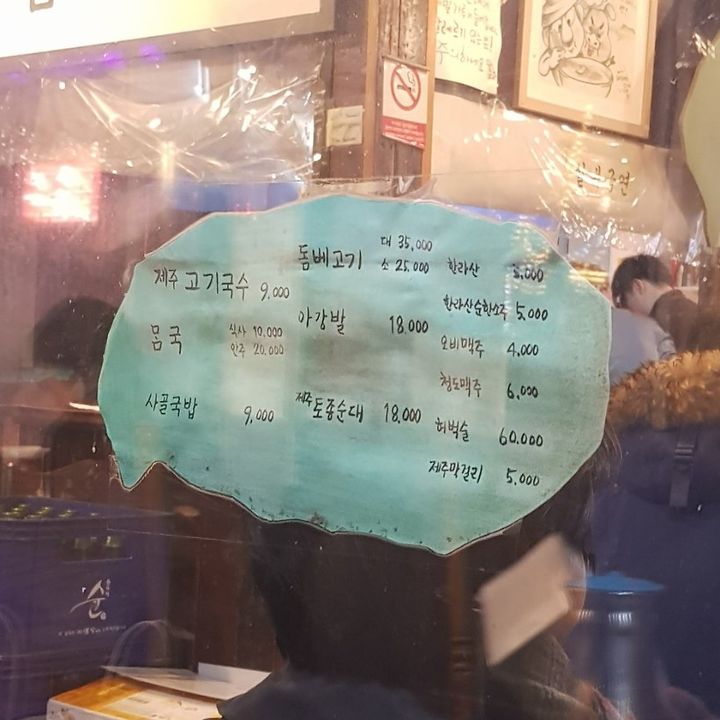 제주 고기국수 9,000
몸국 식사 10,000
안주 20,000
사골국밥 9,000
돔베고기 대 35,000
소 25,000
아강발 18,000
제주 토종순대 18,000
한라산 5,000
한라산순한소주 5,000
오비맥주 4,000
청도맥주 6,000
허벅술 60,000
제주막걸리 5,000
순